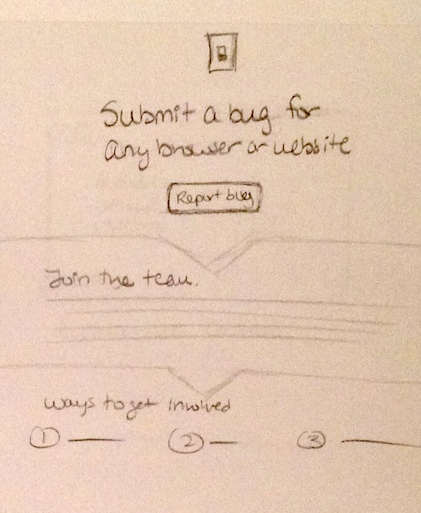 Submit a bug for
any browser or website
Report bug
Join the team.
Ways to get involved
1 2 3